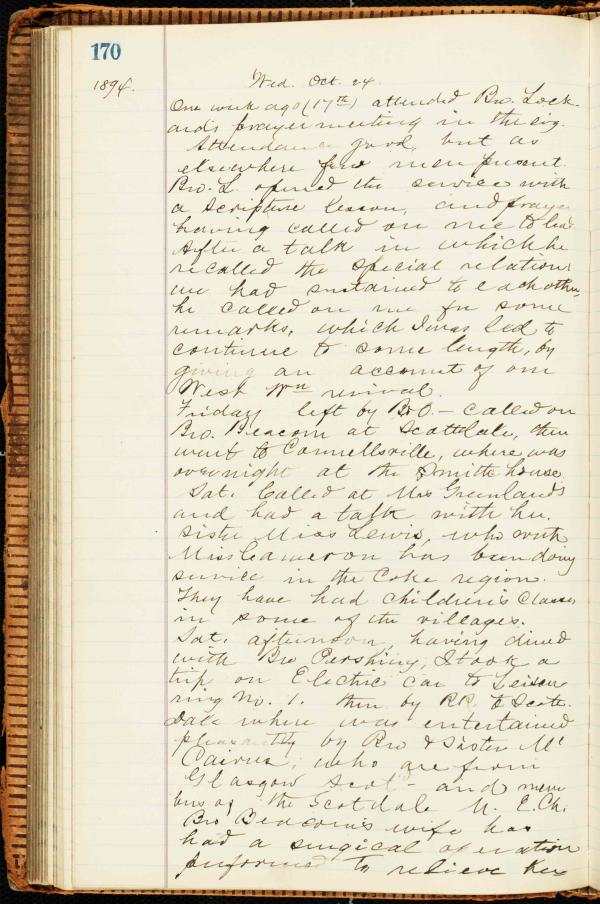 170
1894.
Wed. Oct. 24.
One week ago (17th) attended Bro. Lock-
ard's prayer meeting in the eig.
Attendance good, but as
elsewhere few men present.
Bro. L. opened the service with
a scripture lesson, and prayer
having called on me to lead
After a talk in which he
recalled the special relations
we had sustained to each other,
he called on me for some
remarks, which I was led to
continue to some length, by
giving an account of our
West revival.
Friday left by B&O - called on
Bro. Deacom at Scottdale, then
went to Connellsville, where was
overnight at the Smith house.
Sat. Called at Mrs Greenland's
and had a talk with her
sister Miss Lewis, who with
Miss Cameron has been doing
service in the Coke region.
They have had children's Classes
in some of the villages.
Sat. afternoon, having dined
with Bro Pershing, I took a
trip on Electric car to Leisen
ring No. 1. then by RR. to Scott-
dale where was entertained
pleasantly by Bro & Sister Mc
Cairns, who are from
Glasgow Scotd - and mem
bers of the Scotdale M. E. Ch.
Bro Deacom's wife has
had a surgical operation
performed to relieve her